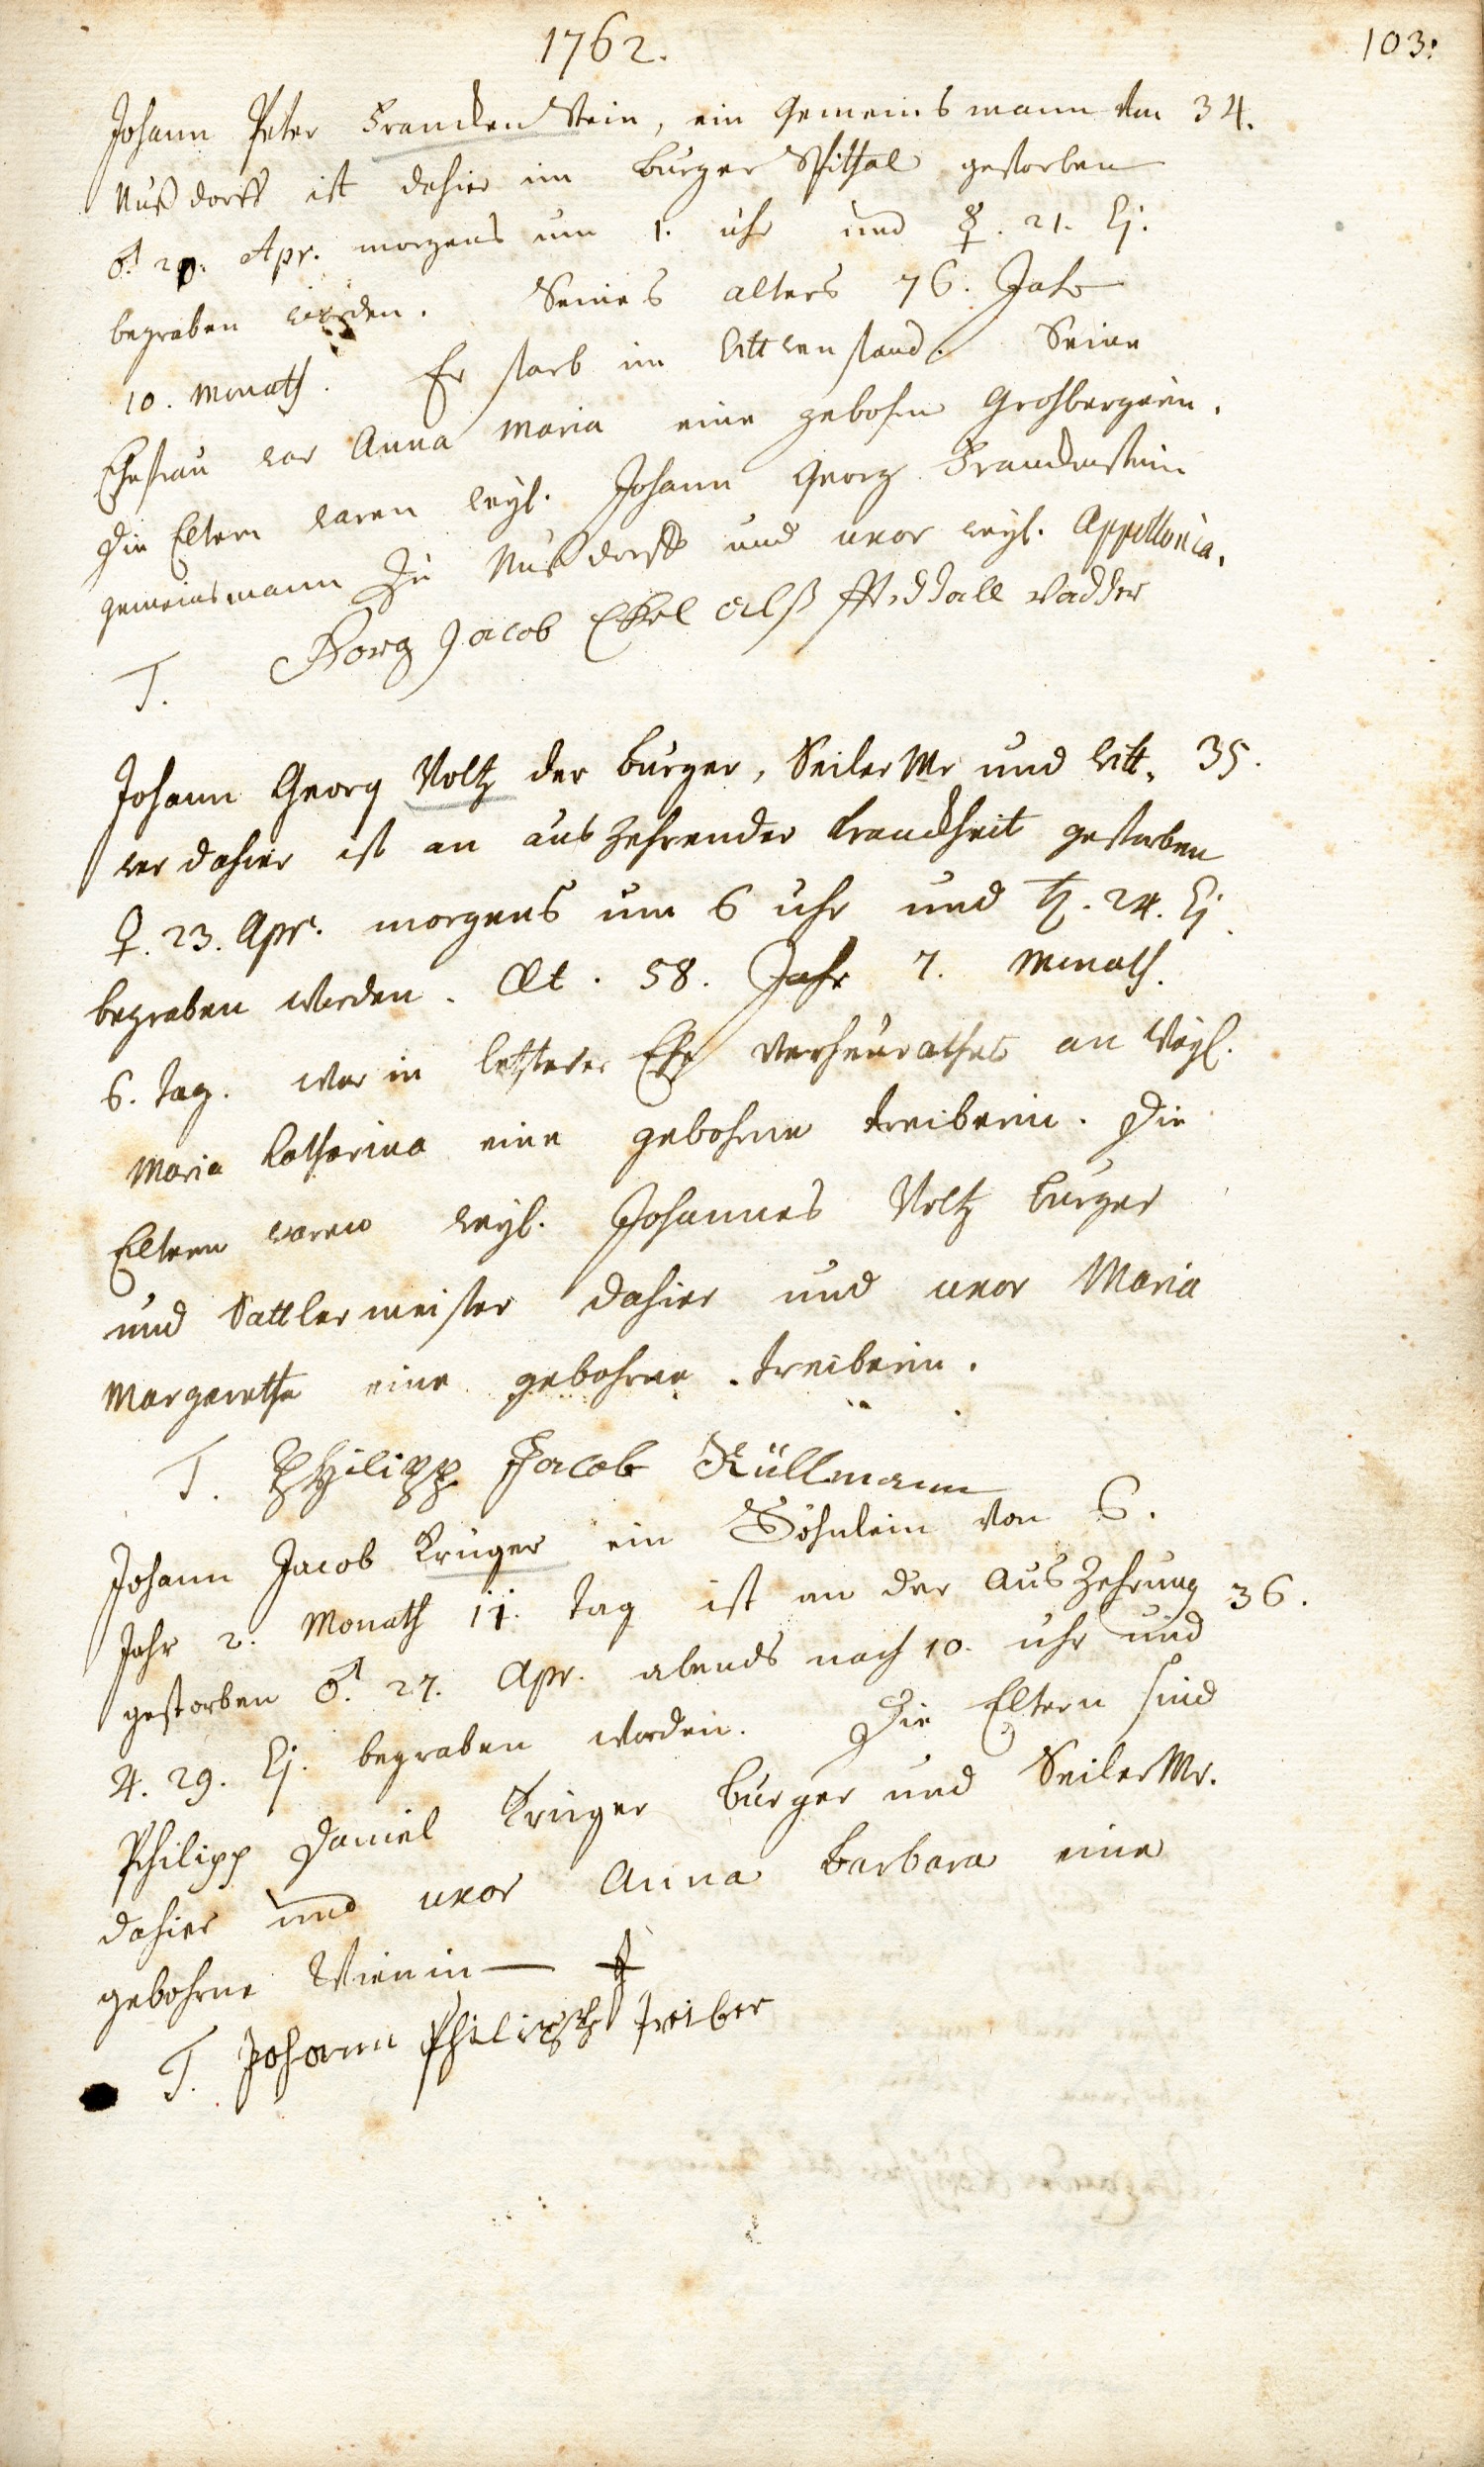 1762.
103.
Johann Peter Franckenstein, ein Gemeinsmann von 34.
Nußdorff ist dahier im Burger Spithal gestorben
♂. 20. Apr. morgens um 1. uhr und ☿. 21. Ej.
begraben worden. Seines alters 76. Jahr
10. Monath. Er starb im Wittwenstand. Seine
Ehefrau war Anna Maria eine gebohrne
Die Eltern waren weyl. Johann Georg Franckenstein
gemeinsmann zu Nußdorff und uxor weyl. Appollonia.
T. Jacob alß Spidall Vadder
Johann Georg Voltz der burger, Seiler Mr und Witt- 35.
wer dahier ist an auszehrender Kranckheit gestorben
♀. 23. Apr. morgens um 6 uhr und ♄. 24. Ej.
begraben worden. Æt. 58. Jahr 7. Monath.
6. tag. war in letsterer Ehe verheurathet an weyl.
Maria Catharina eine gebohrne Treiberin. Die
Eltern waren weyl. Johannes Voltz burger
und Sattlermeister dahier und uxor Maria
Margaretha eine gebohrne Treiberin.
T. Philipp Jacob Küllmann
Johann Jacob Krüger ein Söhnlein von 6.
Jahr 2. Monath 11. tag ist an der auszehrung 36.
gestorben ♂. 27. Apr. abends nach 10. uhr und
♃. 29. Ej. begraben worden. Die Eltern sind
Philipp Daniel Krüger burger und Seiler Mr.
dahier und uxor Anna Barbara eine
gebohrne
T. Johann Philipp Treiber